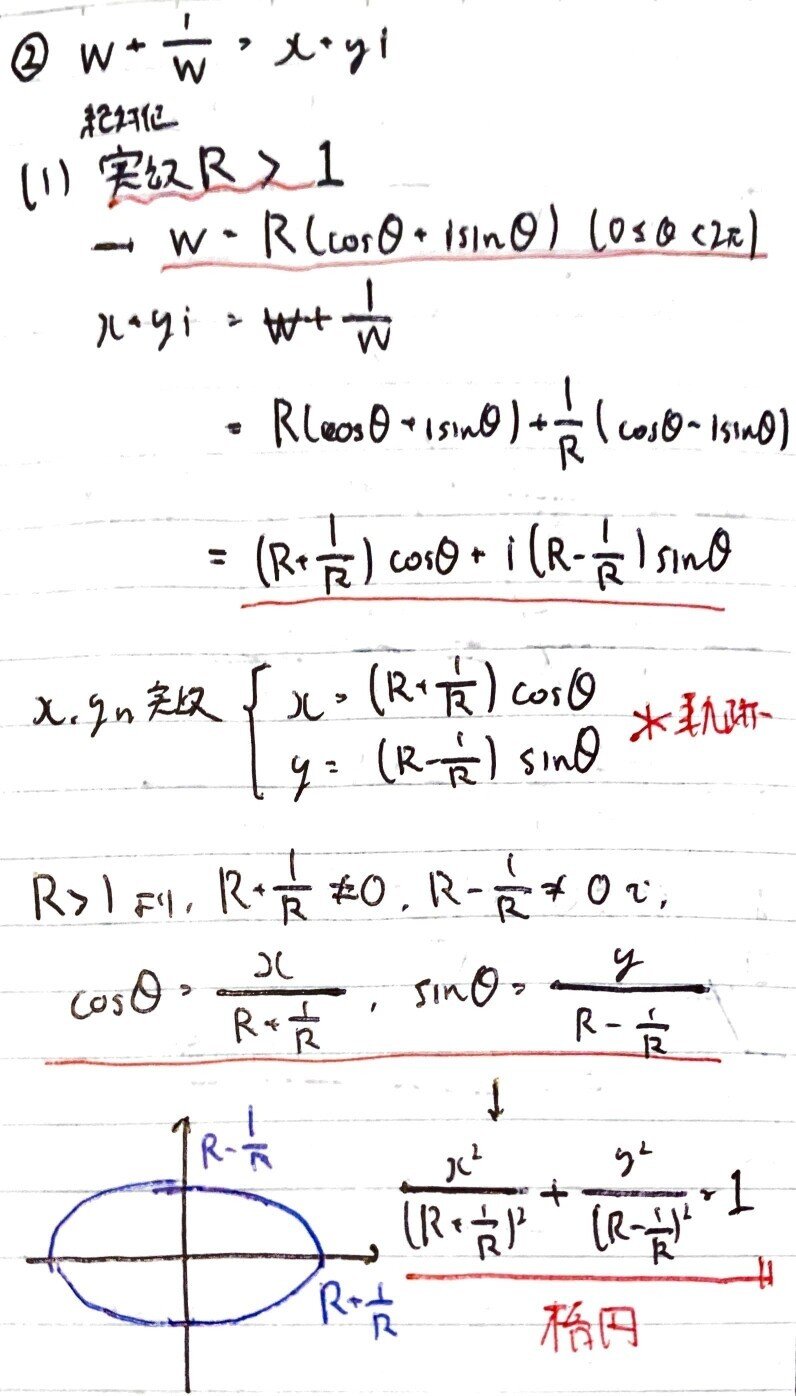 ② w + 1/w = x + yi
絶対値
(1) 実数 R > 1
→ w = R(cosθ + isinθ) (0 ≤ θ < 2π)
x + yi = w + 1/w
= R(cosθ + isinθ) + 1/R (cosθ - isinθ)
= (R + 1/R) cosθ + i (R - 1/R) sinθ
x, yは実数 { x = (R + 1/R) cosθ
y = (R - 1/R) sinθ
*軌跡
R > 1 より, R + 1/R ≠ 0, R - 1/R ≠ 0 で,
cosθ = x/(R + 1/R), sinθ = y/(R - 1/R)
↓
x²/(R + 1/R)² + y²/(R - 1/R)² = 1
楕円
R - 1/R
R + 1/R